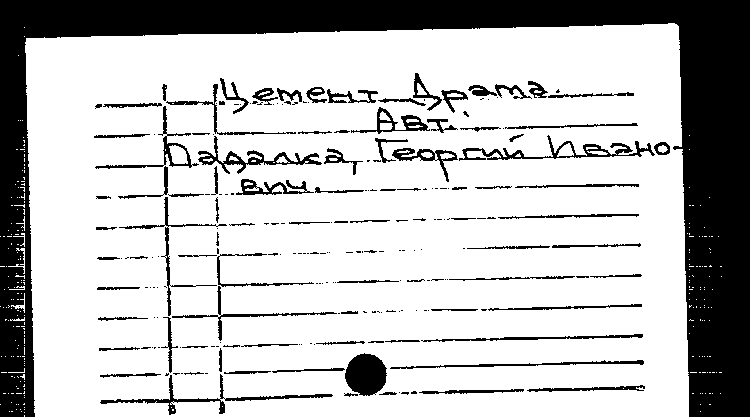 Цемент. Драма.
Авт.:
Падалка, Георгий Ивано-
вич.